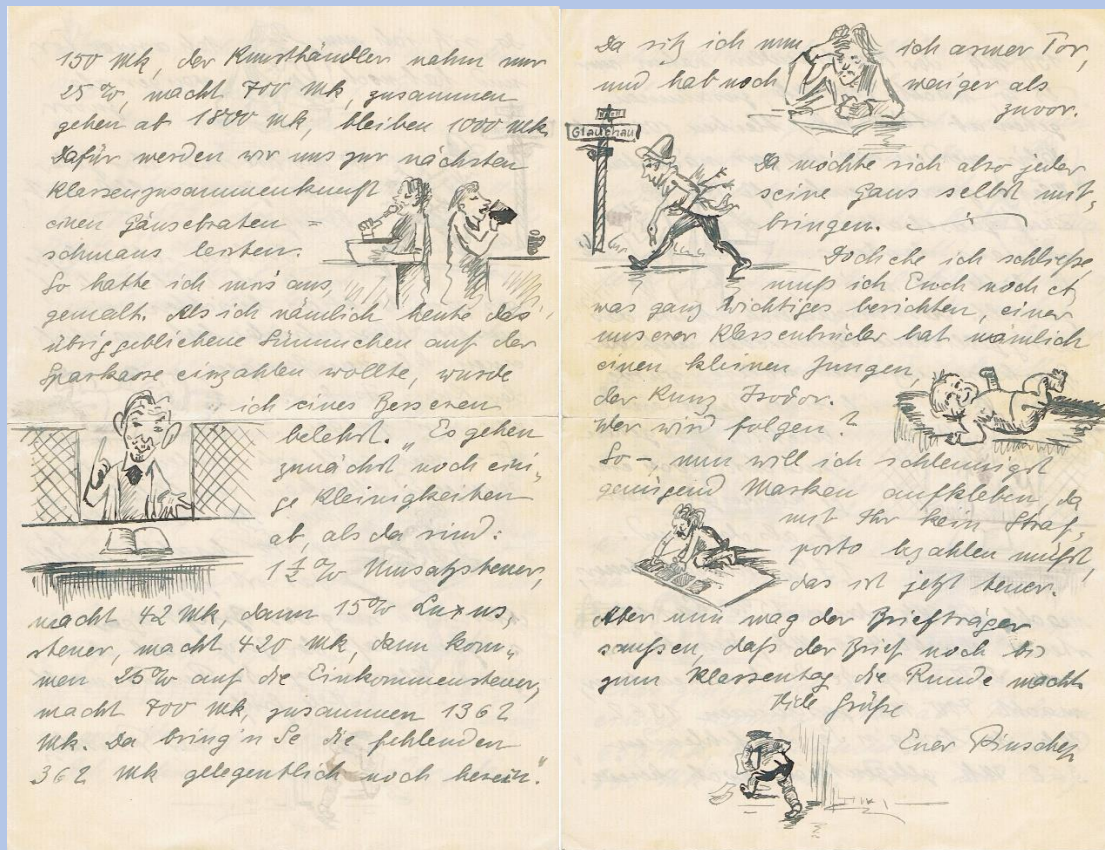 150 Mk, der Kunsthändler nahm nur
25 %, macht 700 Mk, zusammen
gehen ab 1800 Mk, bleiben 1000 Mk.
Dafür werden wir uns zur nächsten
Klassenzusammenkunft
einen Gänsebraten=
schmaus leisten.
So hatte ich mir's aus,
gemalt. Als ich nämlich heute das
übriggebliebene Sümmchen auf der
Sparkasse einzahlen wollte, wurde
ich eines Besseren
belehrt. „Es gehen
zunächst noch eini,
ge Kleinigkeiten
ab, als da sind:
1 1/2 % Umsatzsteuer,
macht 42 Mk, dann 15% Luxus,
steuer, macht 420 Mk, dann kom,
men 25% auf die Einkommensteuer,
macht 700 Mk, zusammen 1362
Mk. Da bring'n Se die fehlenden
362 Mk gelegentlich noch herein."
Da sitz ich nun ich armer Tor,
und hab noch weniger als
zuvor.
Glauchau
Da möchte sich also jeder
seine Gans selbst mit,
bringen.
Doch ehe ich schließe,
muß ich Euch noch et,
was ganz Wichtiges berichten, einer
unserer Klassenbrüder hat nämlich
einen kleinen Jungen,
der Kunz Isodor.
Wer wird folgen?
So –, nun will ich schleunigst
genügend Marken aufkleben, da
mit Ihr kein Straf,
porto bezahlen müßt,
das ist jetzt teuer.
Aber nun mag der Briefträger
sausen, daß der Brief noch bis
zum Klassentag die Runde macht.
Viele Grüße
Euer Pinscher